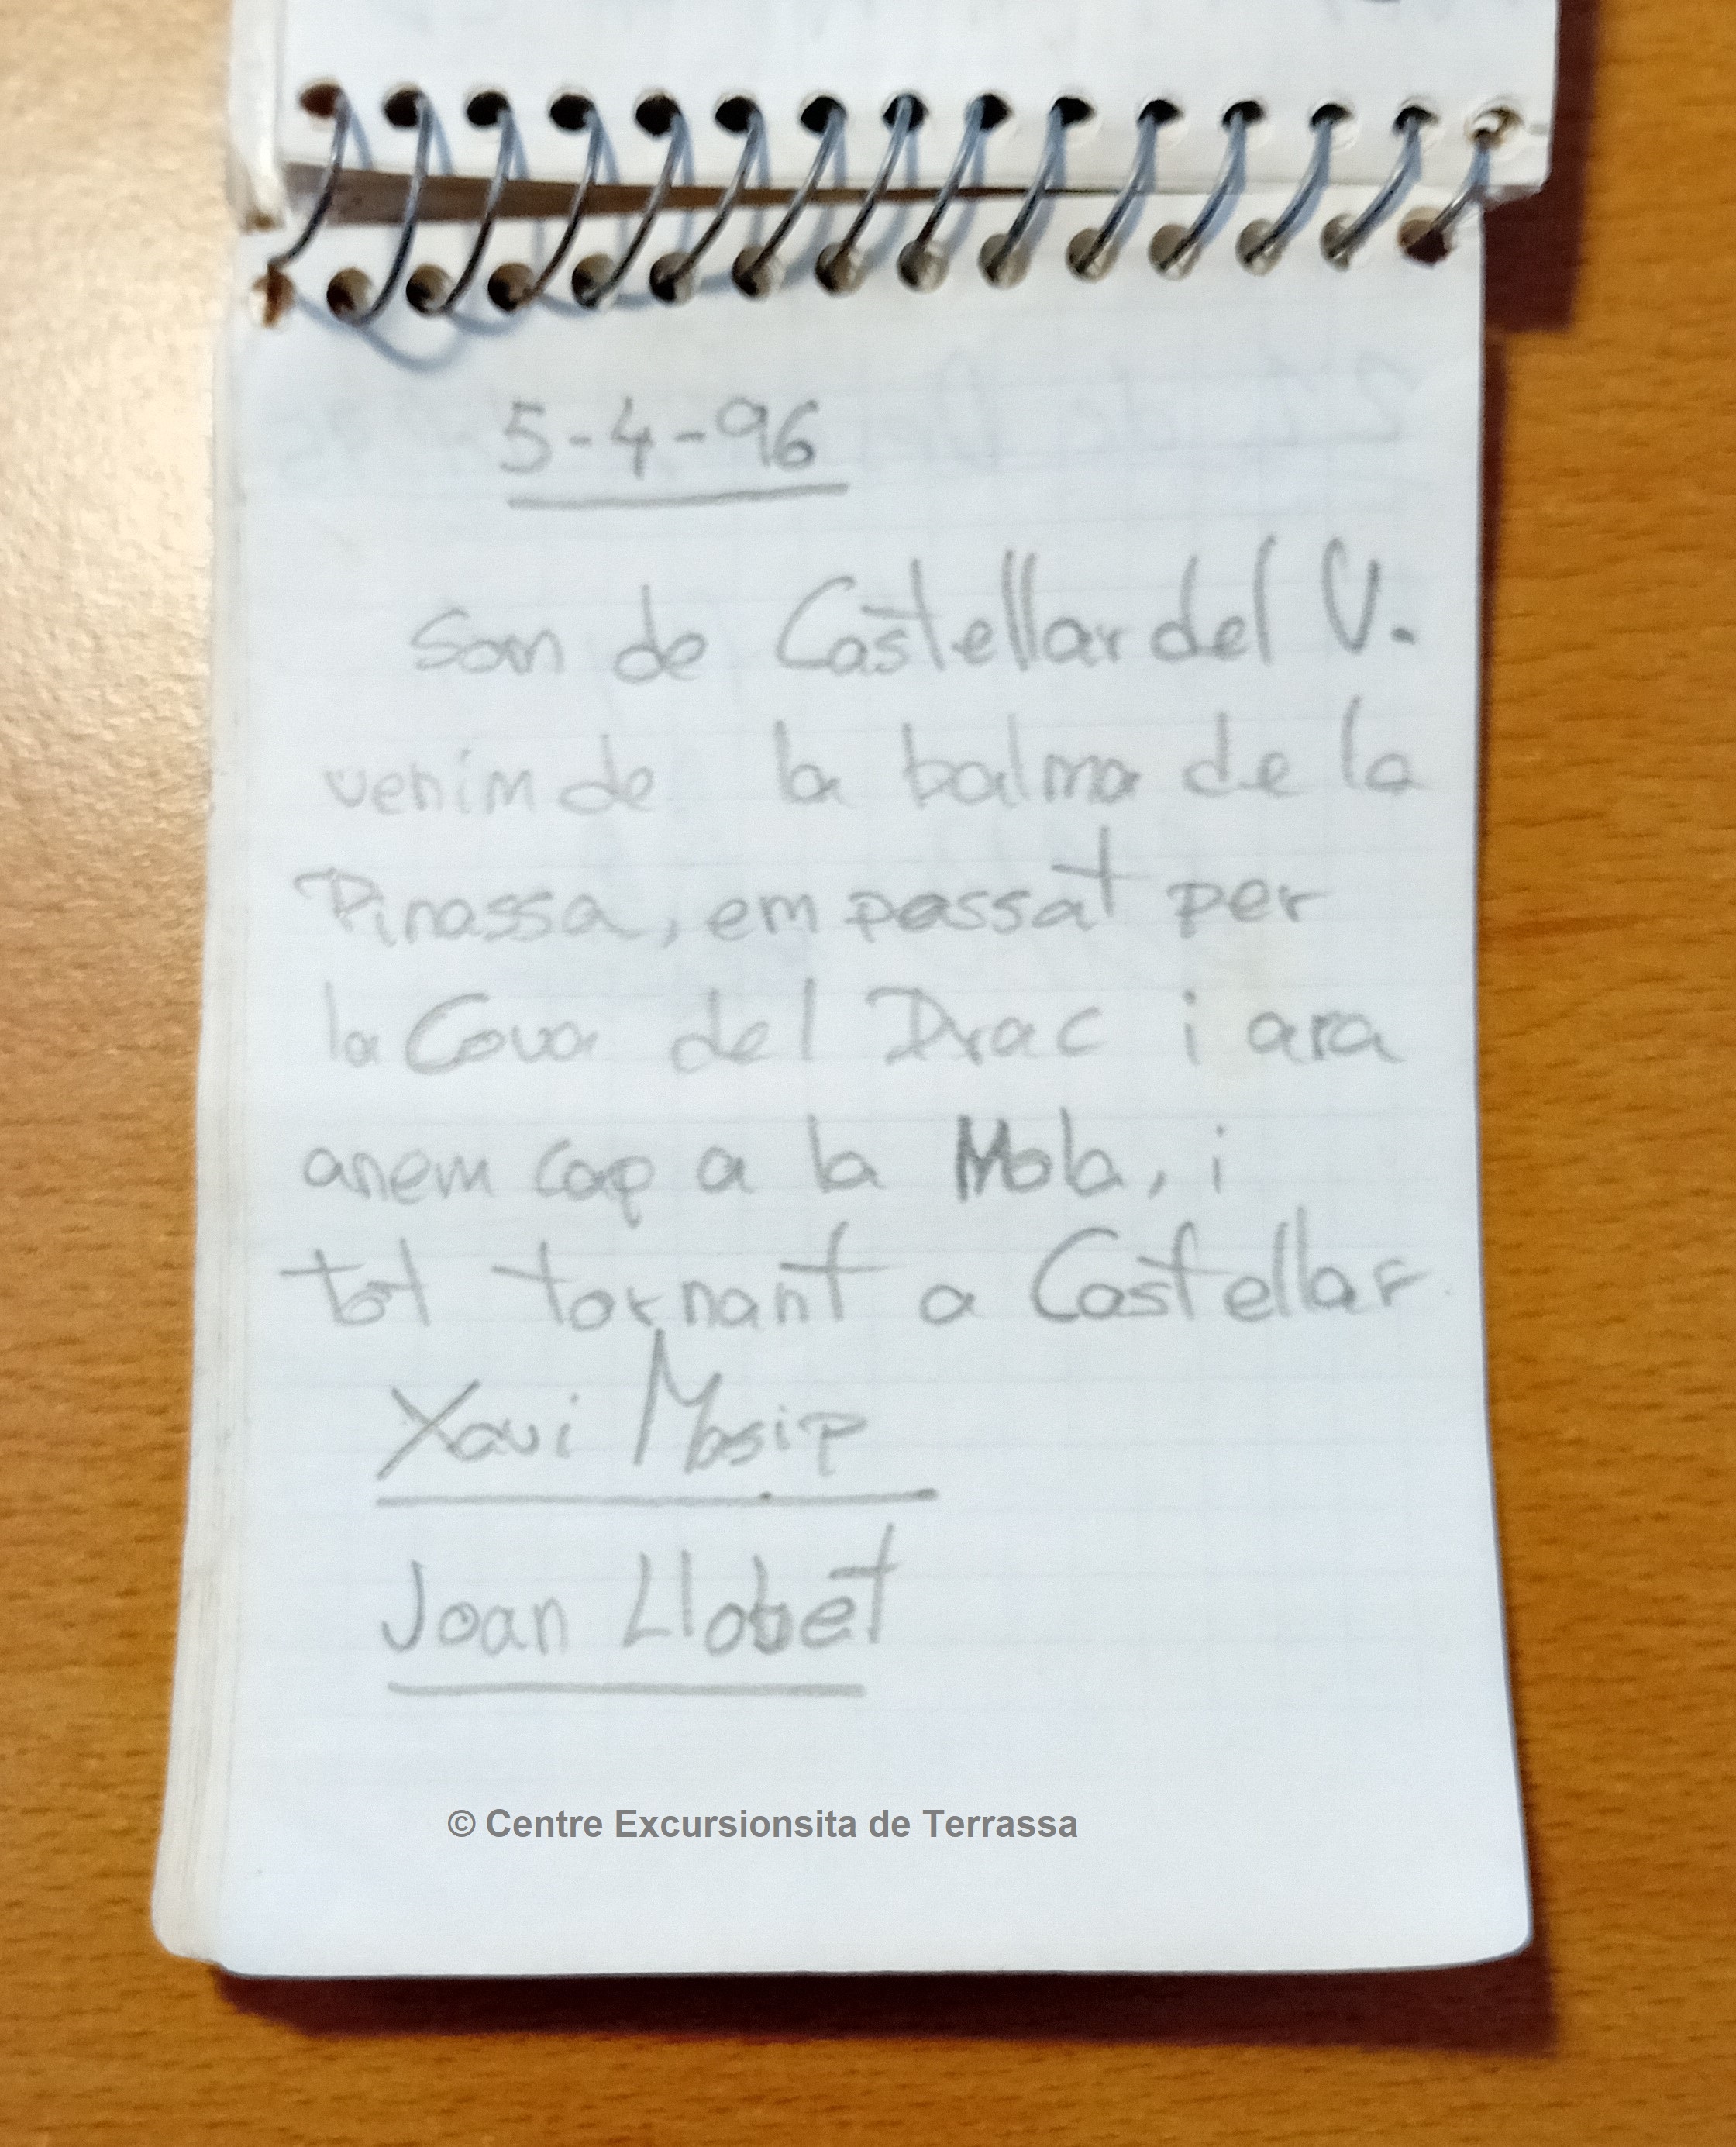 5-4-96
Som de Castellar del V.
venim de la balma de la
Pinassa, em passat per
la Cova del Drac i ara
anem cap a la Mola, i
tot tornant a Castellar
Xavi Masip
Joan Llobet
© Centre Excursionsita de Terrassa